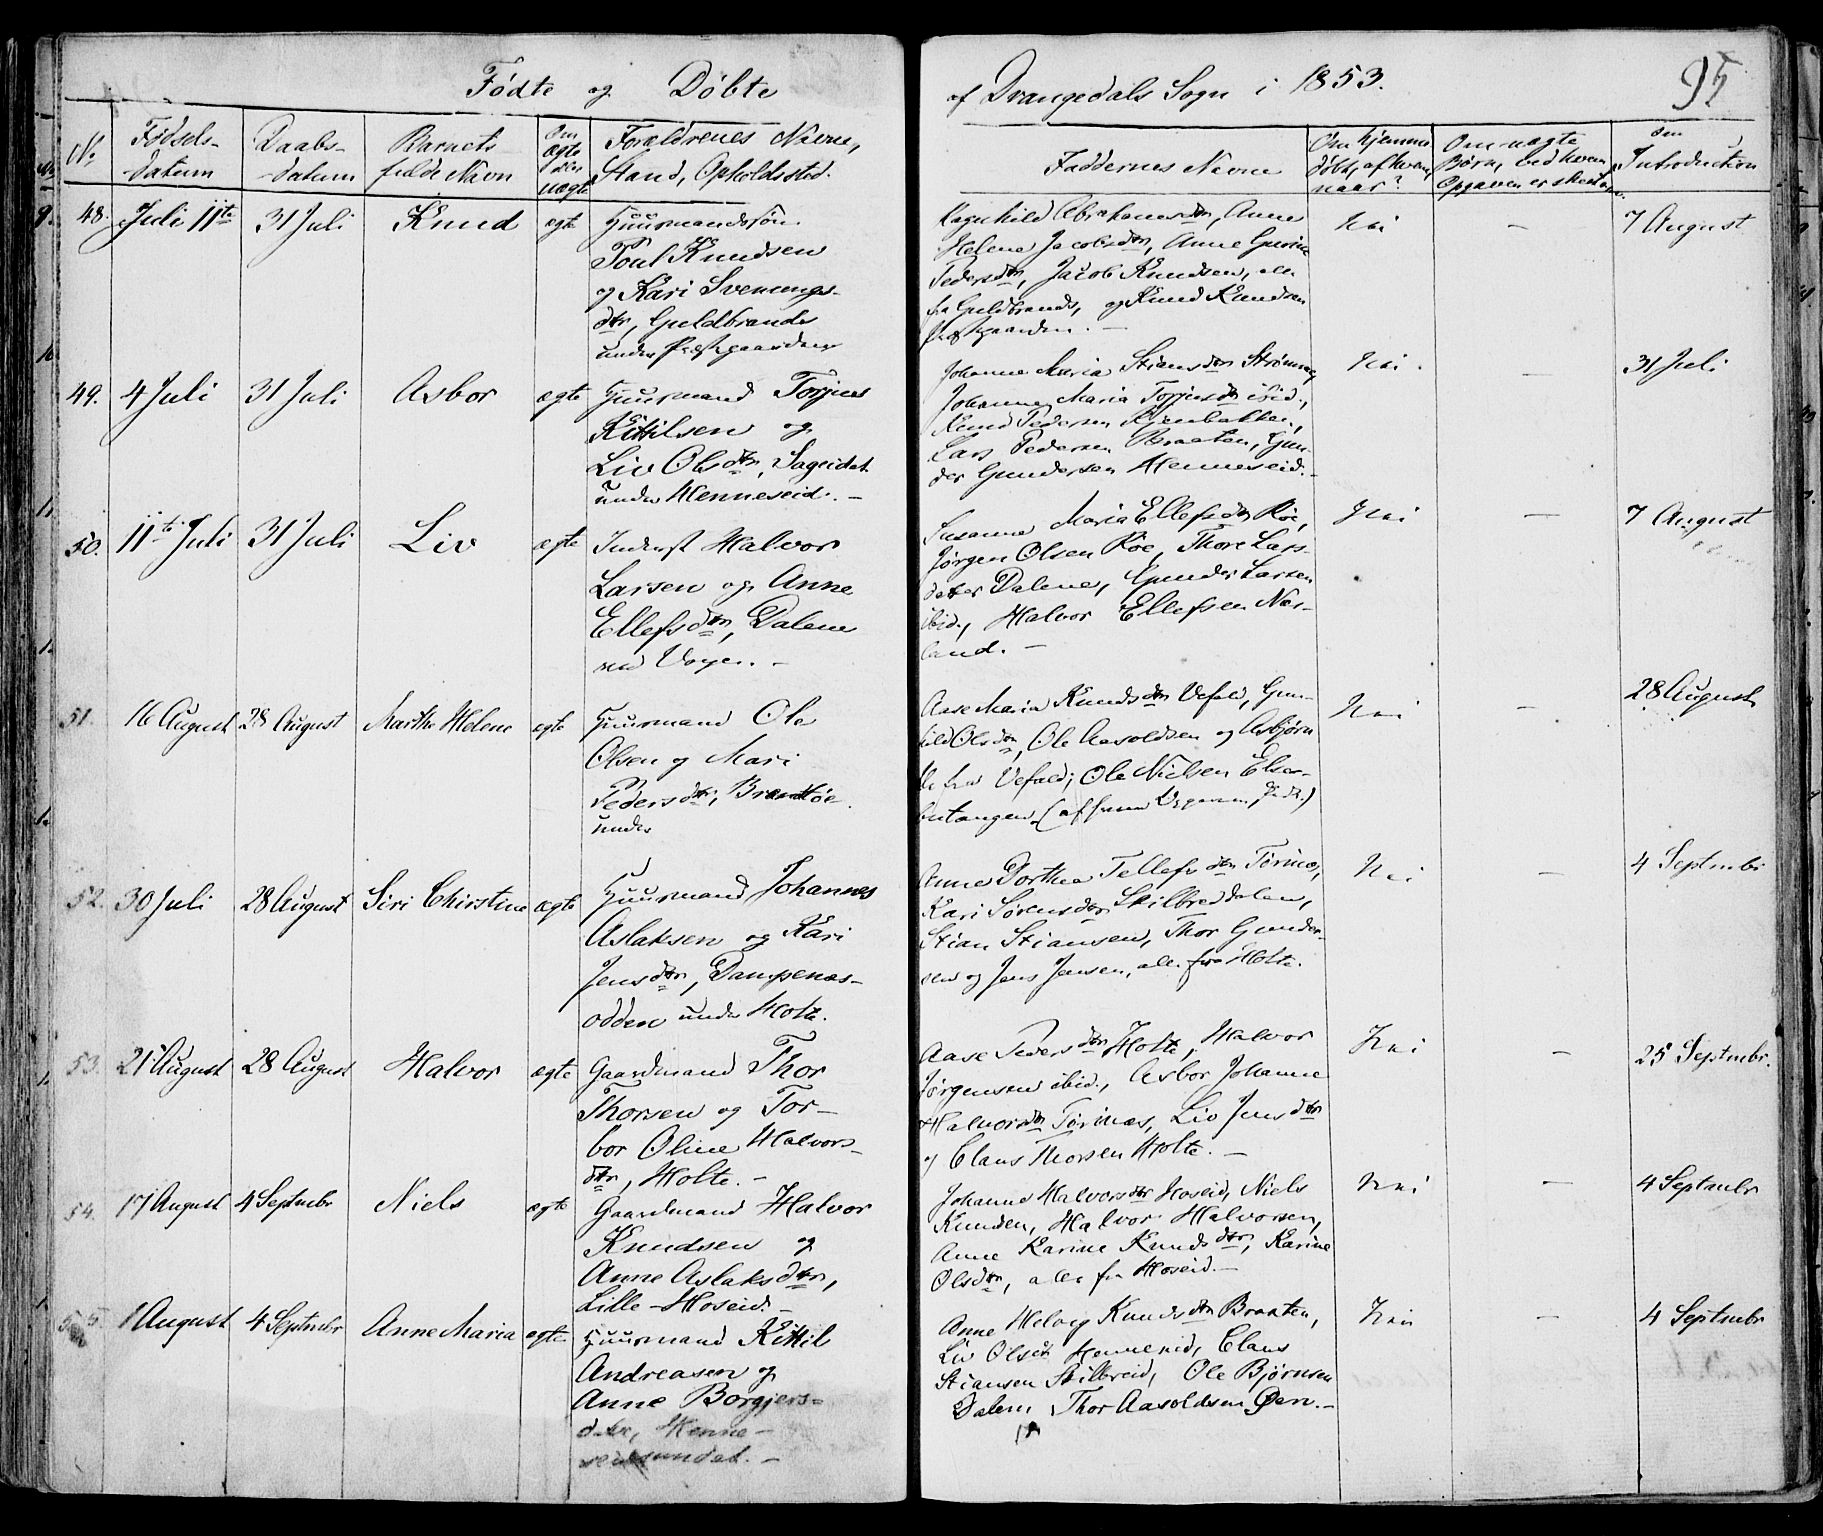 Fødte og Døbte
af Drangedals Sogn i 1853.
95
No
Fødsels-
datum
Daabs-
datum
Barnets
fulde Navn
Om
ægte
eller
uægte
Forældrenes Navne,
Stand, Opholdssted.
Faddernes Navne
Om hjemme
døbt, af hvem,
naar?
Om uægte
Børn, ved hvem
Opgaven er skeet
den
Introduction
48. Juli 11te 31 Juli Knud ægte Huusmandssøn
Poul Knudsen
og Kari Svenungs-
dtr, Guldbrands
under Præstgaarden
Ragnhild Abrahamsdtr, Anne
Helene Jacobsdtr, Anne Gurine
Pedersdtr, Jacob Knudsen, alle
fra Guldbrands, og Knud Knudsen
Præstgaarden. —
Nei
—
7 August
49. 4 Juli 31 Juli Asbor ægte Huusmand Torjus
Kittilsen og
Liv Olsdtr, Sageidet
under Henneseid. —
Johanne Maria Stiansdtr Strømmen
Johanne Maria Torjusdtr ibid.,
Knud Pedersen
Lars Pedersen Braaten, Gun-
der Gundersen Henneseid. -
Nei.
—
31 Juli
50. 11te Juli 31 Juli Liv ægte Inderst Halvor
Larsen og Anne
Ellefsdtr, Dalene
—
Susanne Maria Ellefsdtr Röe,
Jørgen Olsen Röe, Thore Lars-
datter Dalene, Gunder Larsen
ibid., Halvor Ellefsen Næs-
land. —
Nei
—
7 August
51. 16 August 28 August Marthe Helene ægte Huusmand Ole
Olsen og Mari
Pedersdtr,
under
Aase Maria Knudsdtr Vefald, Gun-
hild Olsdtr, Ole Aasoldsen og Asbjørn
fra Vefald; Ole Nielsen
Nei
—
28 August
52. 30 Juli 28 August Siri Chirstine ægte Huusmand Johannes
Aslaksen og Kari
Jensdtr, Dampenæs-
odden under Holte.
Anne Dorthea Tellefsdtr Törnæs,
Kari Sörensdtr Skilbreddalen,
Stian Stiansen, Thor Gunder-
sen og Jens Jensen, alle fra Holte.
Nei
—
4 Septmbr
53. 21 August 28 August Halvor ægte Gaardmand Thor
Thorsen og Tor-
bor Oline Halvors-
dtr, Holte. —
Aase Pedersdtr Holte, Halvor
Jørgensen ibid., Asbor Johanne
Halvorsdtr Törnæs, Liv Jensdtr
og Claus Thorsen Holte. —
Nei
—
25 Septmbr.
54. 17 August 4 Septmbr Niels ægte Gaardmand Halvor
Knudsen og
Anne Aslaksdtr,
Lille-Hoseid. —
Johanne Halvorsdtr Hoseid, Niels
Knudsen, Halvor Halvorsen,
Anne Karine Knudsdtr, Karine
Olsdtr, alle fra Hoseid. —
Nei
—
4 Septmbr
55. 1 August 4 Septmbr Anne Maria ægte Huusmand Kittil
Andreasen og
Anne Borgjers-
datr, Henne-
seidsundet. —
Anne Helvig Knudsdtr Braaten,
Liv Olsdtr Henneseid, Claus
Stiansen Skilbreid, Ole Bjørnsen
Dalen, Thor Aasoldsen Øen. —
Nei
—
4 Septmbr